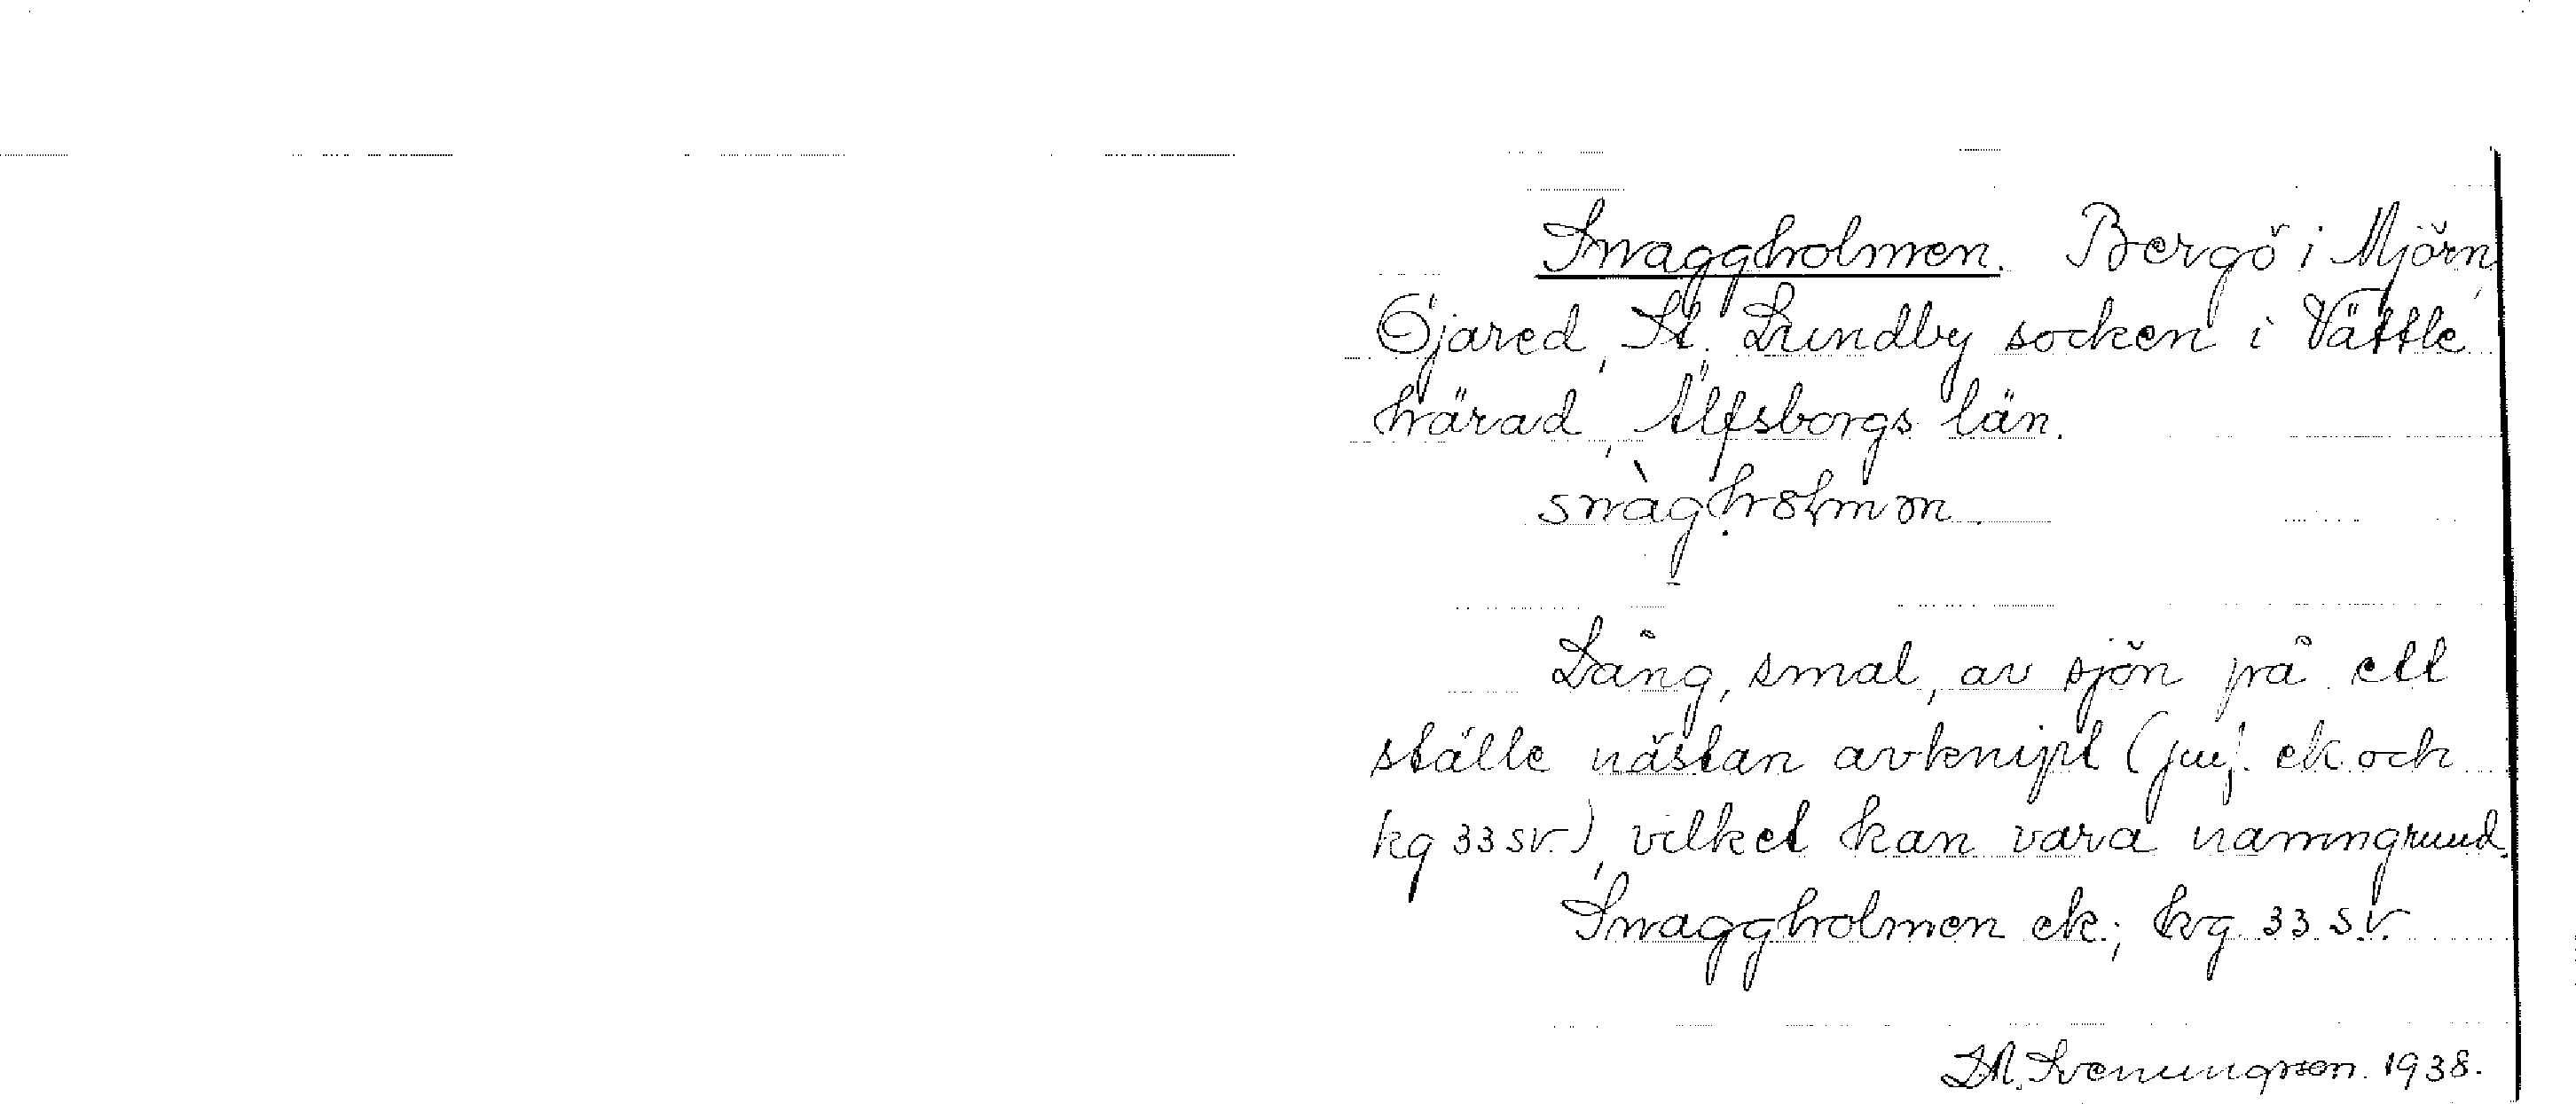 Snaggholmen. Bergö i Mjörn,
Öjared, St. Lundby socken i Vättle
härad, Älfsborgs län.
Lång, smal, av sjön på ett
ställe nästan avknipt (jmf. ek och
kg 33 sv.), vilket kan vara namngrund.
Snaggholmen ek.; kg 33 s.v.
Svenungsson. 1938.